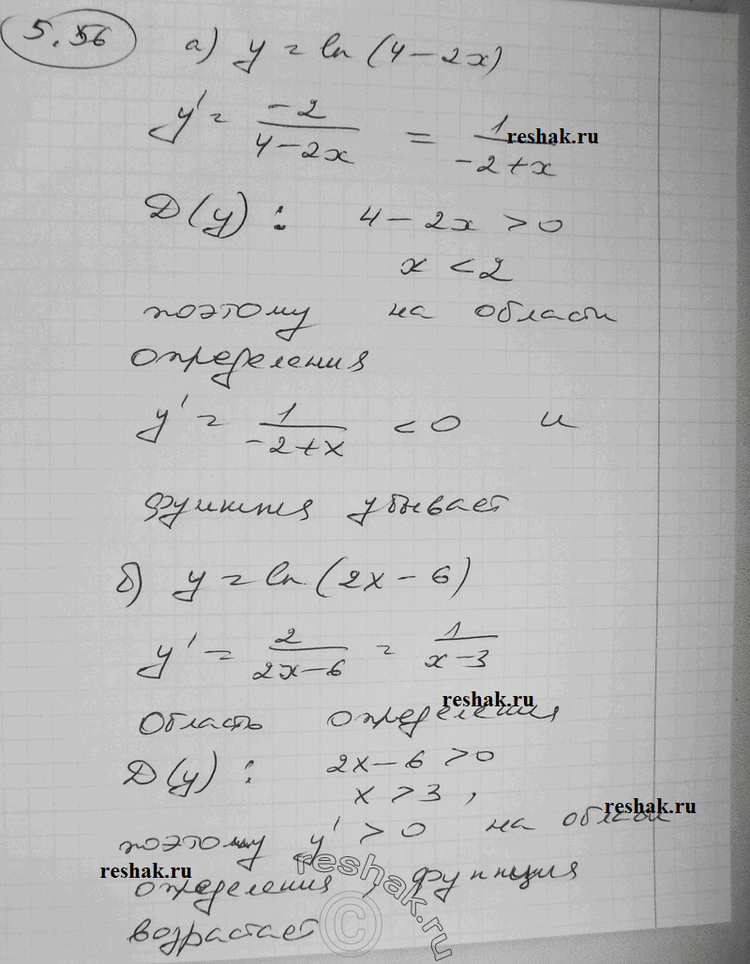 5.56
а) y = ln (4 - 2x)
y' = -2 / (4 - 2x) = 1 / (-2 + x)
reshak.ru
D(y) : 4 - 2x > 0
x < 2
поэтому на области
определения
y' = 1 / (-2 + x) < 0 и
функция убывает
б) y = ln (2x - 6)
y' = 2 / (2x - 6) = 1 / (x - 3)
reshak.ru
Область определения
D(y) : 2x - 6 > 0
x > 3 ,
reshak.ru
поэтому y' > 0 на области
reshak.ru
определения, функция
reshak.ru
©
возрастает